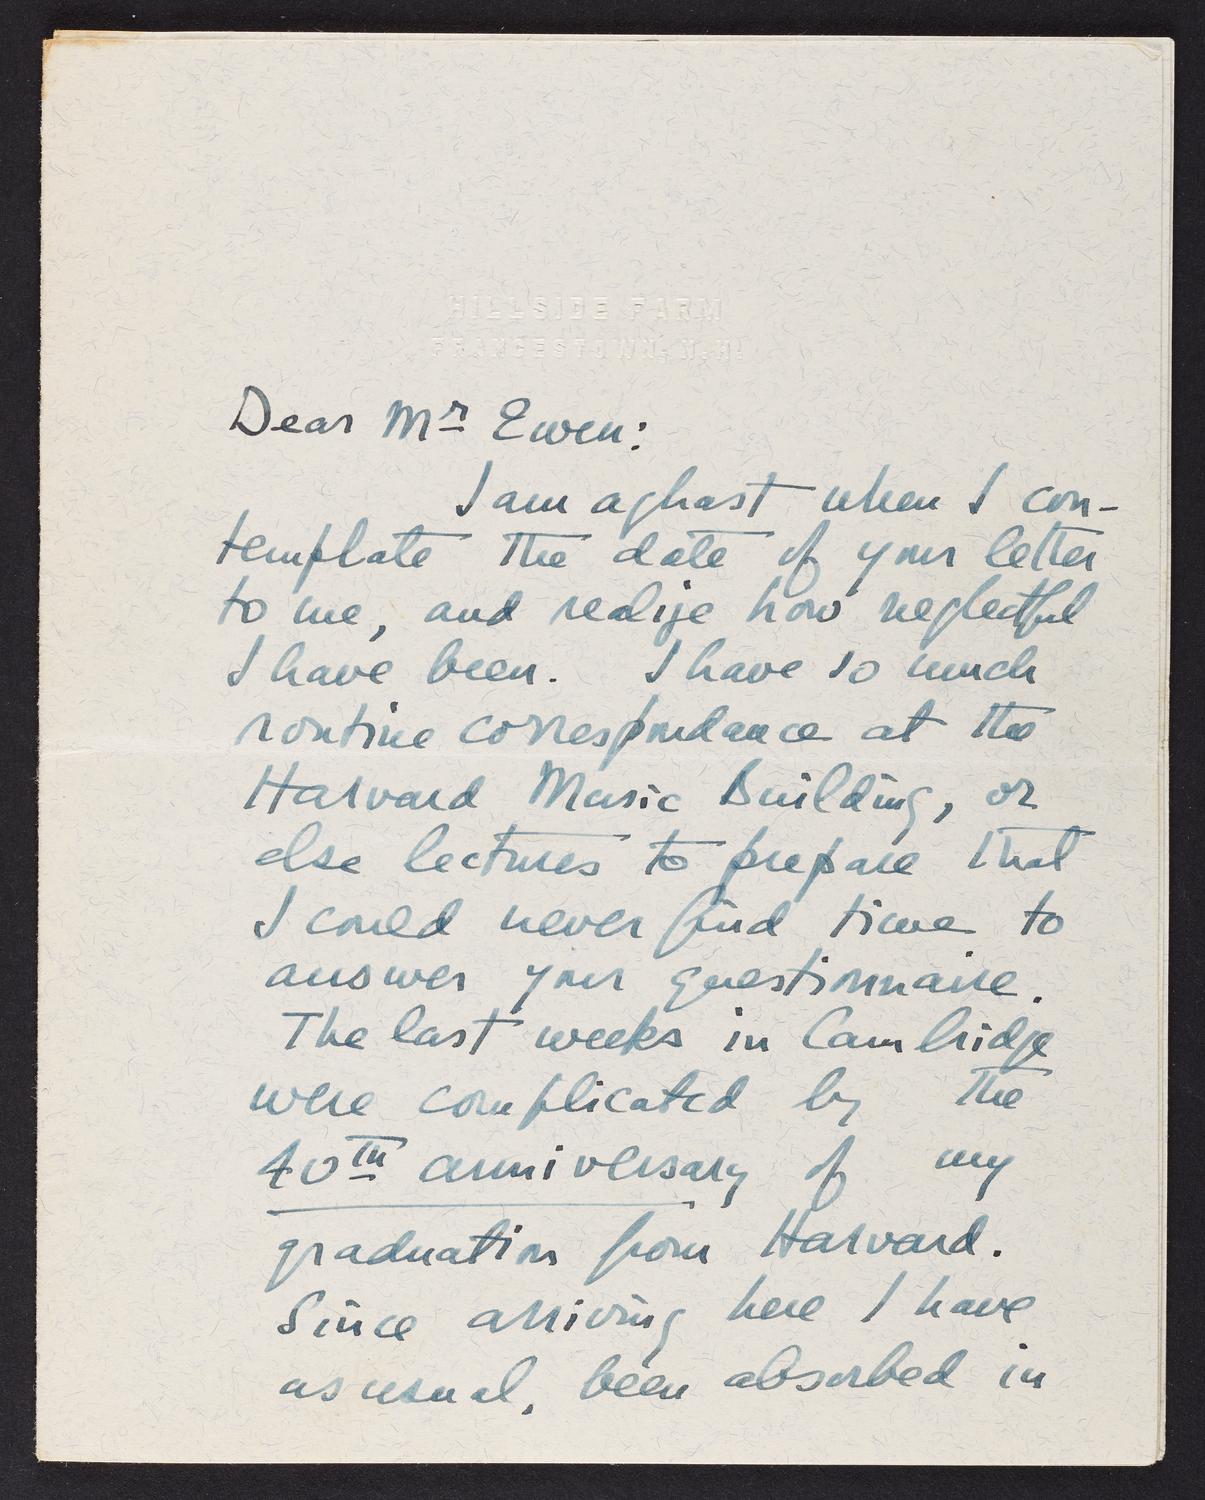 HILLSIDE FARM
FRANCESTOWN, N.H.
Dear Mr Ewen:
I am aghast when I con-
template the date of your letter
to me, and realize how neglectful
I have been. I have so much
routine correspondance at the
Harvard Music Building, or
else lectures to prepare that
I could never find time to
answer your questionnaire.
The last weeks in Cambridge
were complicated by the
40th anniversary of my
graduation from Harvard.
Since arriving here I have
as usual, been absorbed in